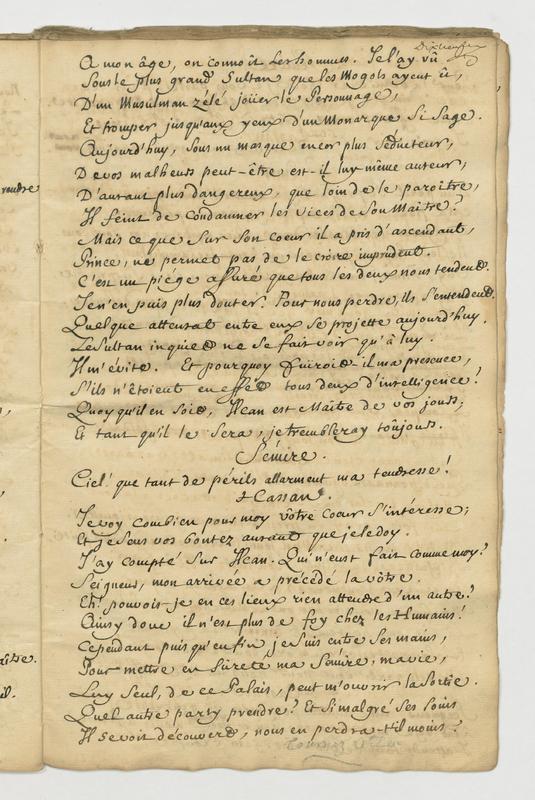 Dixneuf
A mon âge, on connoît les hommes. Je l'ay vû
Sous le plus grand Sultan que les Mogols ayent û,
D'un Musulman zélé joüer le Personnage,
Et tromper jusqu'aux yeux d'un Monarque si sage.
Aujourd'huy, sous un masque encor plus séducteur,
De vos malheurs peut-être est-il luy même auteur;
D'autant plus dangereux, que loin de le paroître,
Il feint de condamner les vices de son Maître?
Mais ce que sur son coeur il a pris d'ascendant,
Prince, ne permet pas de le croire imprudent.
C'est un piége assuré que tous les deux nous tendent.
Je n'en puis plus douter. Pour nous perdre, ils s'entendent.
Quelque attentat entre eux se projette aujourd'huy.
Le Sultan inquiet ne se fait voir qu'à luy.
Il m'évite. Et pourquoy fuiroit-il ma presence,
S'ils n'étoient en effet tous deux d'intelligence?
Quoy qu'il en soit, Ilcan est Maître de vos jours;
Et tant qu'il le sera, je trembleray toûjours.
Sémire.
Ciel! que tant de périls allarment ma tendresse!
Cassan.
Je voy combien pour moy vôtre coeur s'intéresse;
Et je sens vos bontez autant que je le doy.
J'ay compté sur Ilcan. Qui n'eust fait comme moy?
Seigneur, mon arrivée a précédé la vôtre.
Eh! pouvois-je en ces lieux rien attendre d'un autre?
Ainsy donc il n'est plus de foy chez les Humains!
Cependant puis qu'enfin je suis entre ses mains,
Pour mettre en sûreté ma Sémire, ma vie,
Luy seul, de ce Palais, peut m'ouvrir la sortie.
Quel autre party prendre? Et si malgré ses soins
Il se voit découvert, nous en perdra-t-il moins?
rendre